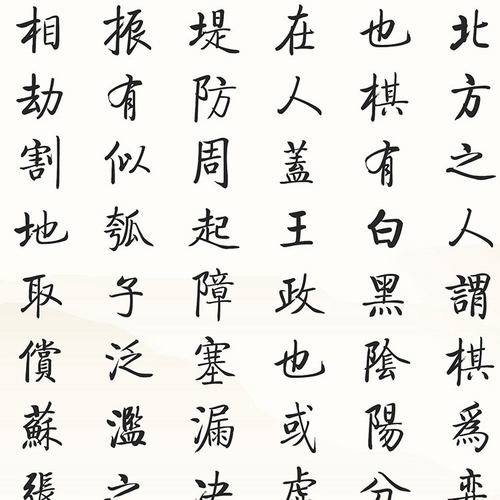 北方之人謂棋爲弈
也棋有白黑陰陽分
在人蓋王政也或虛
堤防周起障塞漏決
振有似瓠子泛濫之
相劫割地取償蘇張